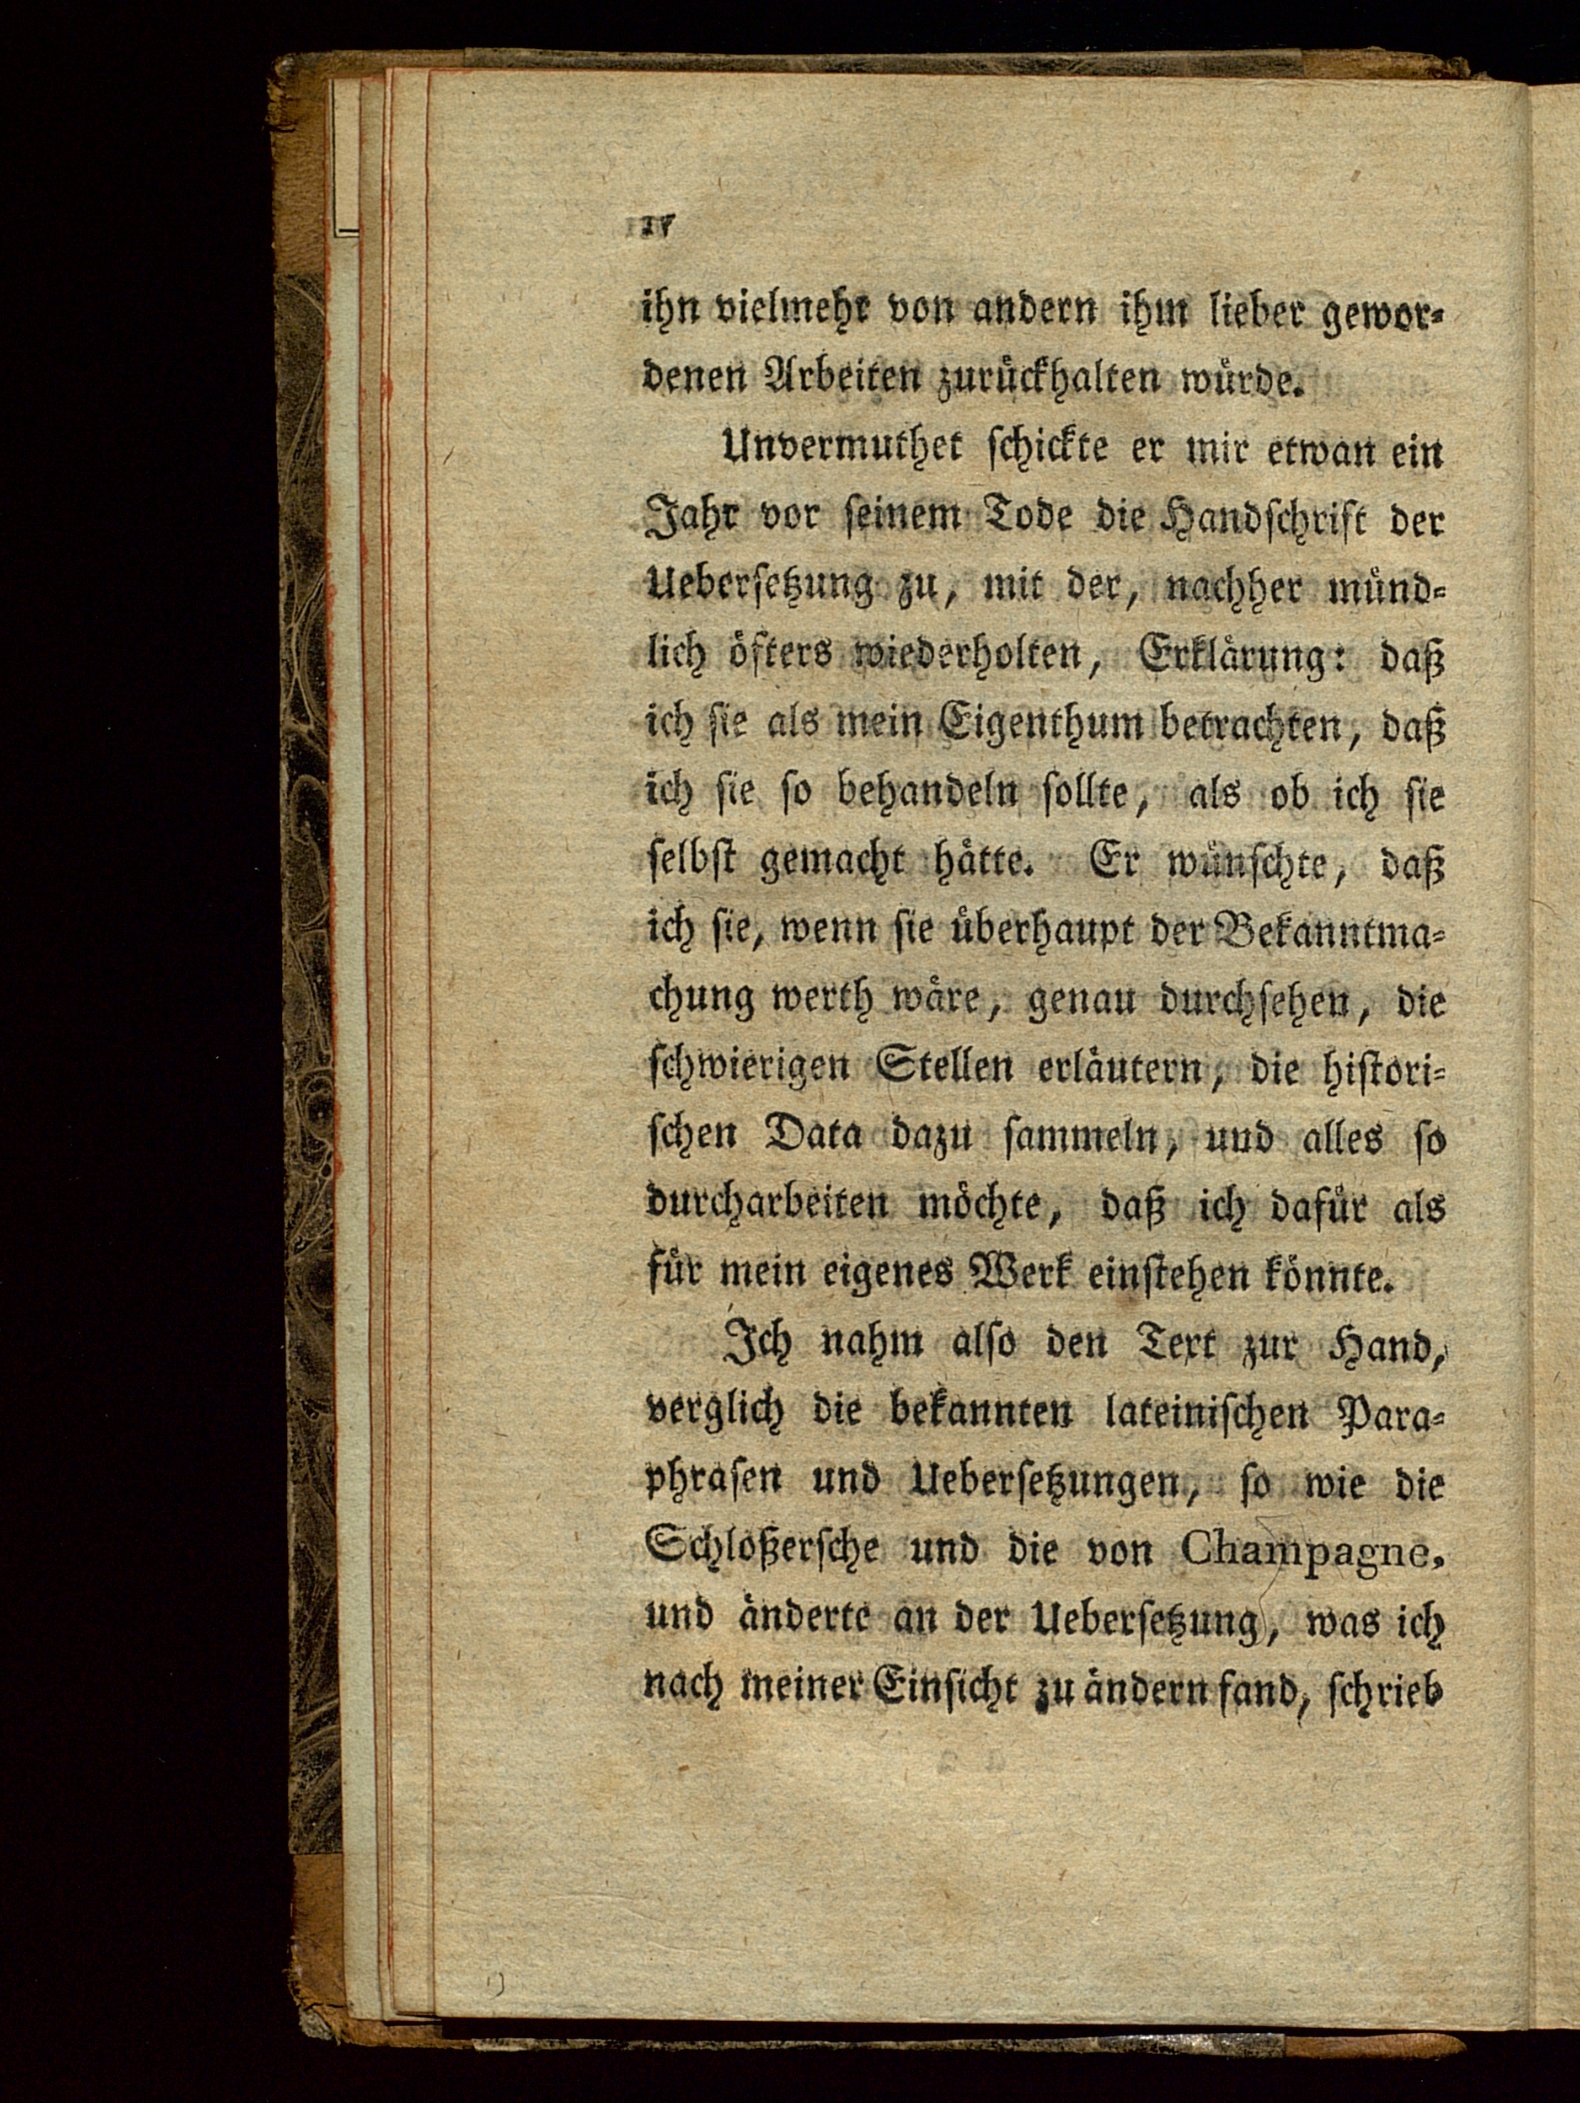 IV
ihn vielmehr von andern ihm lieber gewor-
denen Arbeiten zurückhalten würde.
Unvermuthet schickte er mir etwan ein
Jahr vor seinem Tode die Handschrift der
Uebersetzung zu, mit der, nachher münd-
lich öfters wiederholten, Erklärung: daß
ich sie als mein Eigenthum betrachten, daß
ich sie so behandeln sollte, als ob ich sie
selbst gemacht hätte. Er wünschte, daß
ich sie, wenn sie überhaupt der Bekanntma-
chung werth wäre, genau durchsehen, die
schwierigen Stellen erläutern, die histori-
schen Data dazu sammeln, und alles so
durcharbeiten möchte, daß ich dafür als
für mein eigenes Werk einstehen könnte.
Ich nahm also den Text zur Hand,
verglich die bekannten lateinischen Para-
phrasen und Uebersetzungen, so wie die
Schloßersche und die von Champagne,
und änderte an der Uebersetzung, was ich
nach meiner Einsicht zu ändern fand, schrieb